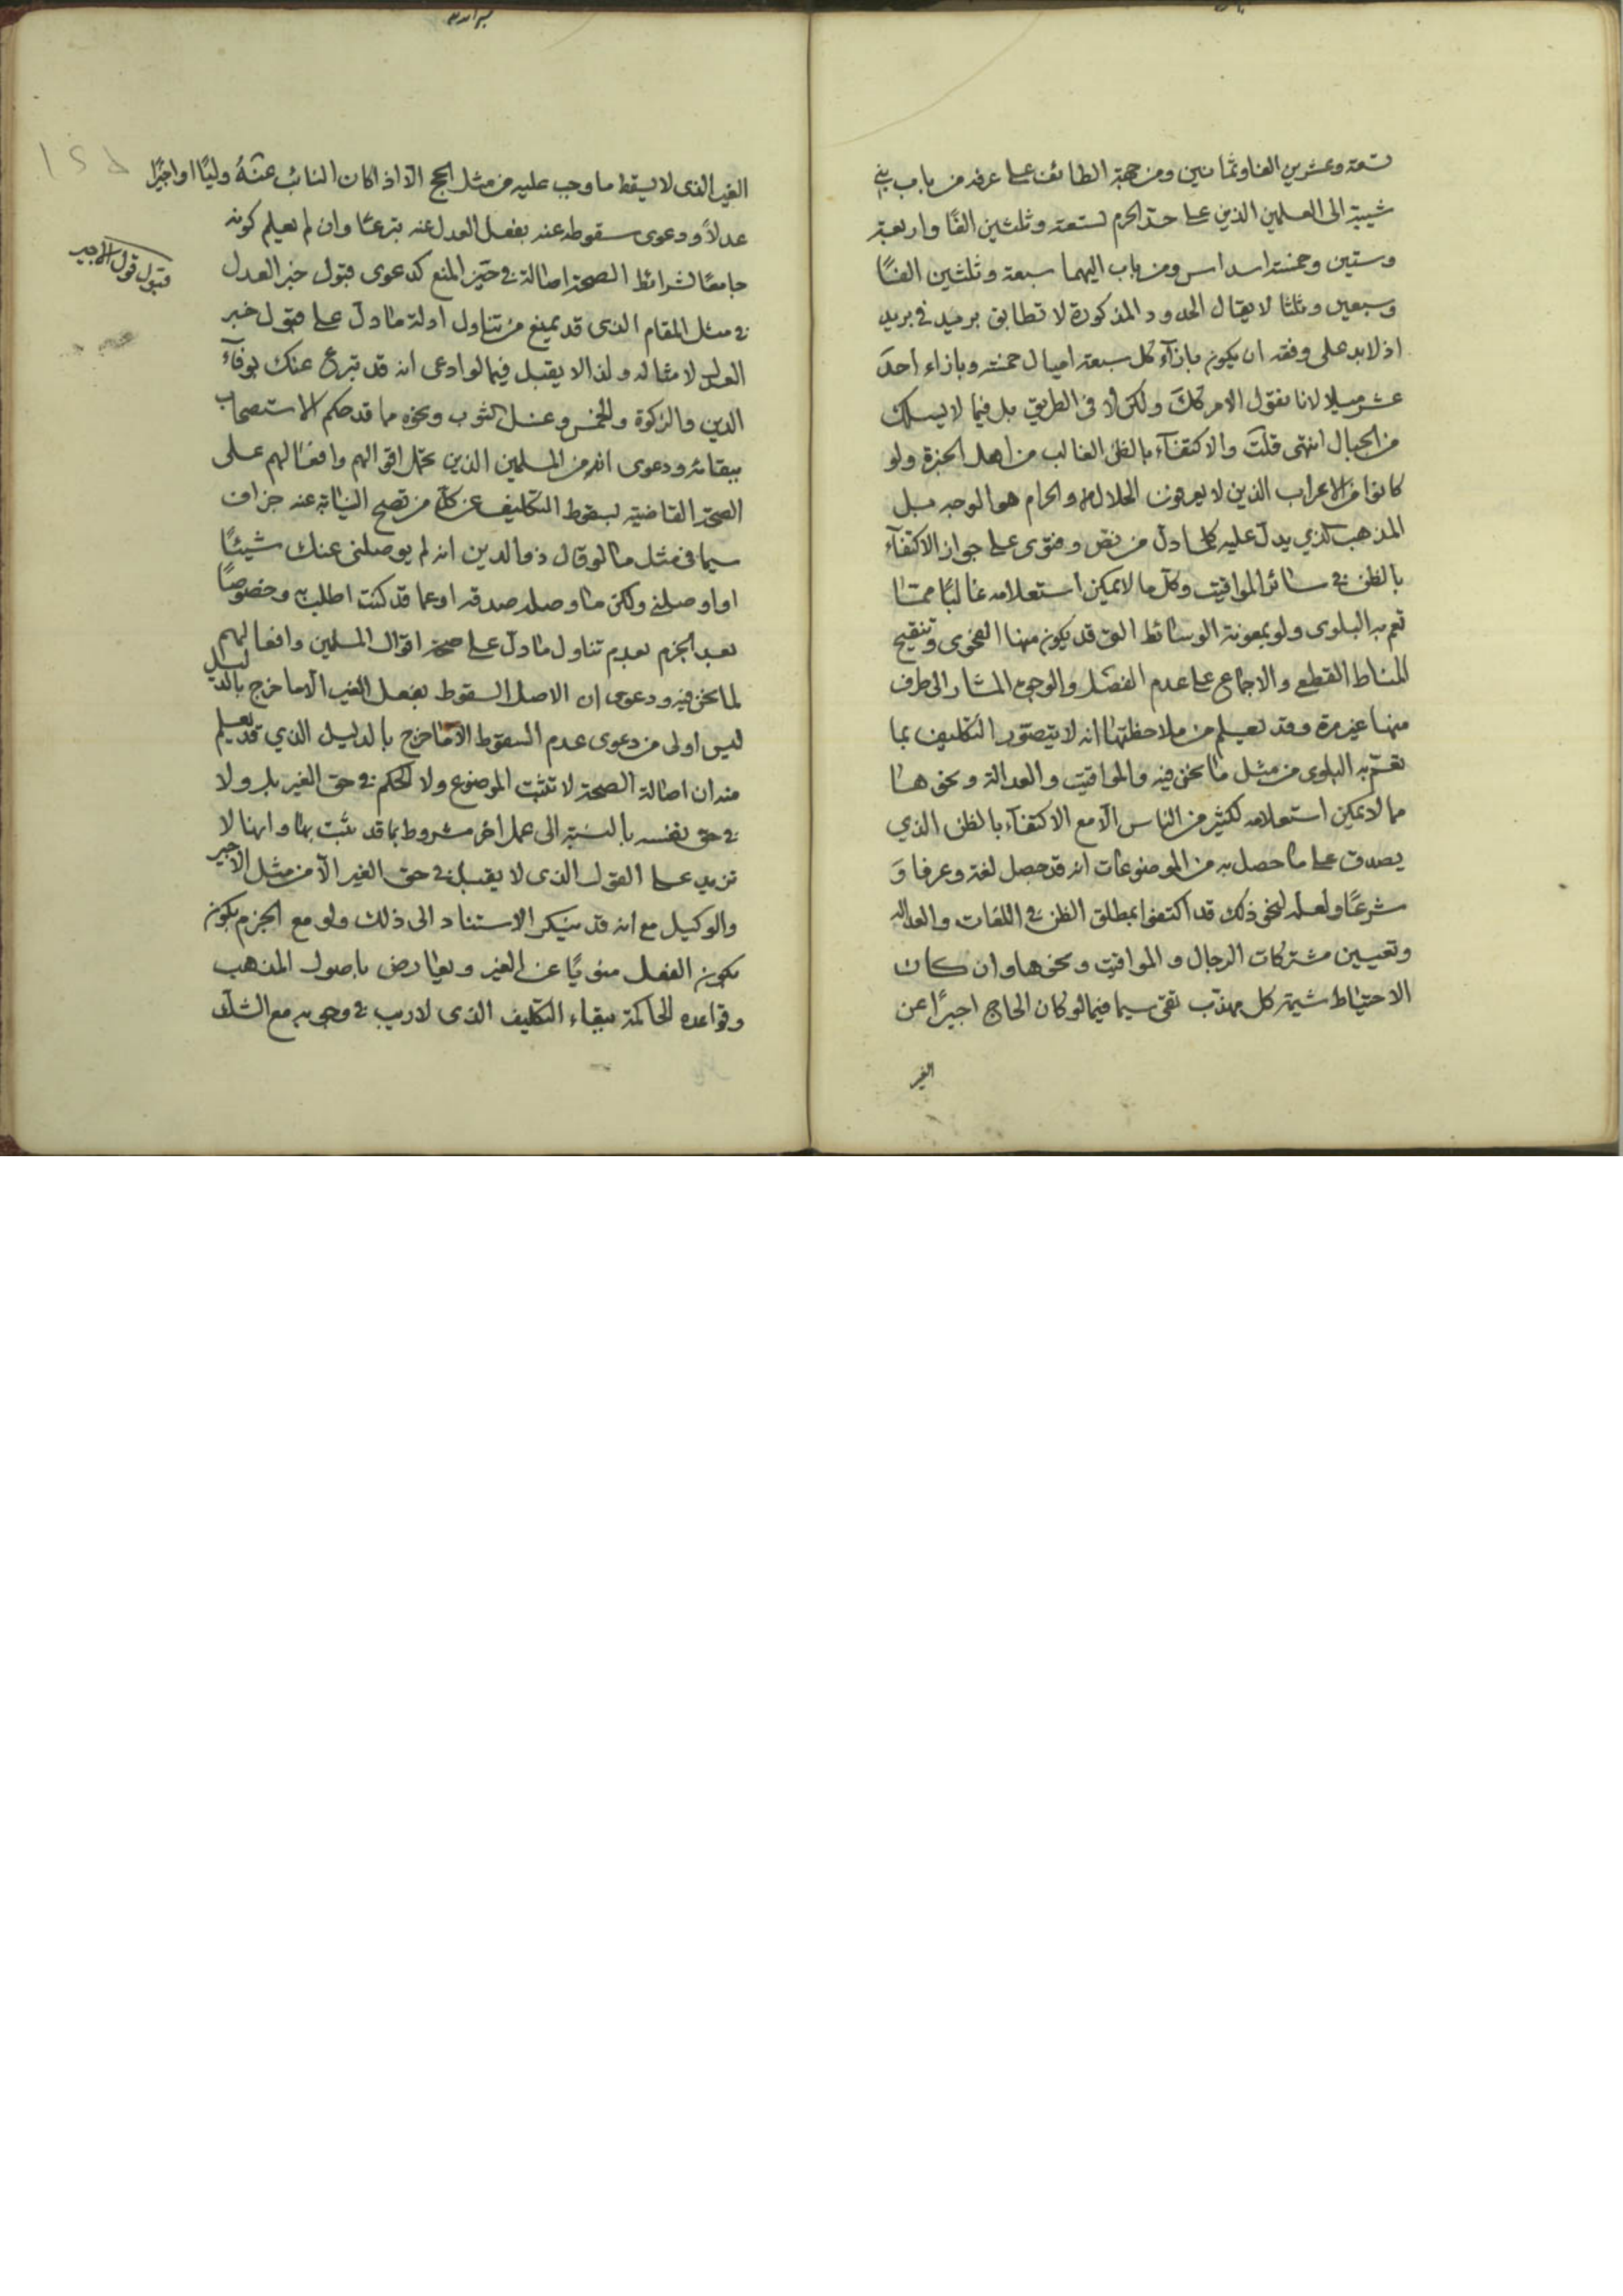 تسعة وعشرين الفا وثمانين ومن جهة الطائف على عرفه من باب بني
شيبة الى العلمين الذين على حد الحرم لستعة وثلثين الفًا واربعة
وستين وخمسة اسداس ومن باب اليهما سبعة وثلثين الفًا
وسبعين وثلثا لا يقال الحدود المذكورة لا تطابق بريد في بريد
اذ لابد على وفقه ان يكون بازآء كل سبعة اميال خمسة وبازاء احد
عشر ميلا لانا نقول الامر كك ولكن لا في الطريق بل فيما لا يسلك
من الجبال انتهى قلت والاكتفآء بالظن الغالب من اهل الخبرة ولو
كانوا من الاعراب الذين لا يعرفون الحلال والحرام هو الوجه بل
المذهب الذي يدل عليه كلما دل من نص وفتوى على جواز الاكتفآء
بالظن في سائر المواقيت وكل ما لا يمكن استعلامه غالبًا مما
تعم به البلوى ولو بمعونة الوسائط التي قد يكون منها الفحوى وتنقيح
المناط القطعي والاجماع على عدم الفصل والوجوه المشار الى طرف
منها غير مرة وقد يعلم من ملاحظتها انه لا يتصور التكليف بما
تعم به البلوى من مثل ما نحن فيه والمواقيت والعدالة ونحوها
مما لا يمكن استعلامه لكثير من الناس الا مع الاكتفآء بالظن الذي
يصدق على ما حصل به من الموضوعات انه قد حصل لغة وعرفا و
شرعًا ولعله لنحو ذلك قد اكتفوا بمطلق الظن في اللغات والعداله
وتعيين مشتركات الرجال والمواقيت ونحوها وان كان
الاحتياط شيمة كل مهذب تقي سيما فيما لو كان الحاج اجيرًا عن
الغير
الغير الذى لا يسقط ما وجب عليه من مثل الحج الا اذا كان النائب عنه وليًا او اجيرًا
عدلاً ودعوى سقوطه عنه بفعل العدل عنه تبرعًا وان لم يعلم كونه
جامعًا لشرائط الصحة اصالة في حيز المنع كدعوى قبول خبر العدل
قبول قول الاجير
في مثل المقام الذى قد يمنع من تناول ادلة ما دل على قبول خبر
العدل لامثاله ولذا لا يقبل فيما لو ادعى انه قد تبرع عنك بوفآء
الدين والزكوة والخمس وغسل الثوب ونحوه ما قد حكم الاستصحاب
ببقائه ودعوى انه من المسلمين الذين تحمل اقوالهم وافعالهم على
الصحة القاضية لسقوط التكليف عن كل من تصح النيابة عنه جزاف
سيما في مثل ما لو قال ذو الدين انه لم يوصلني عنك شيئًا
او اوصلني ولكن ما وصله صدقه او عما قد كنت اطلب به وخصوصًا
بعد الجزم بعدم تناول ما دل على صحة اقوال المسلمين وافعالهم
لما نحن فيه ودعوى ان الاصل السقوط بفعل الغير الا ما خرج بالدليل
ليس اولى من دعوى عدم السقوط الا ما خرج بالدليل الذي قد يعلم
منه ان اصالة الصحة لا تثبت الموضوع ولا الحكم في حق الغير بل ولا
في حق نفسه بالنسبة الى عمل اخر مشروط بما قد يثبت بها وانها لا
تزيد على القول الذى لا يقبل في حق الغير الا من مثل الاجير
والوكيل مع انه قد ينكر الاستناد الى ذلك ولو مع الجزم بكون
بكون الفعل منويًا عن الغير ويعارض باصول المذهب
وقواعده الحاكمة ببقاء التكليف الذى لا ريب في وجوبه مع الشك